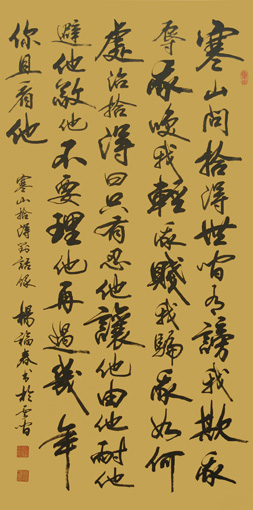 寒山問拾得世間有謗我欺我
辱我咲我輕我賤我騙我如何
處治拾得曰只有忍他讓他由他耐他
避他敬他不要理他再過幾年
你且看他
寒山拾得對話錄 楊福 書於雲間